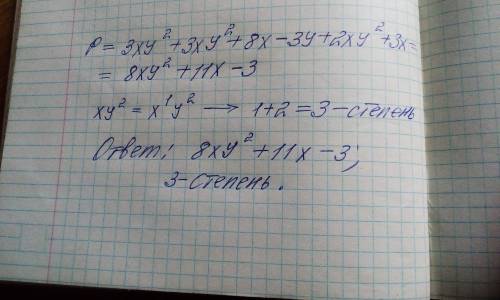 P = 3xy² + 3xy² + 8x - 3y + 2xy² + 3x =
= 8xy² + 11x - 3
xy² = x¹y² → 1 + 2 = 3 - степень
Ответ: 8xy² + 11x - 3;
3 - степень.